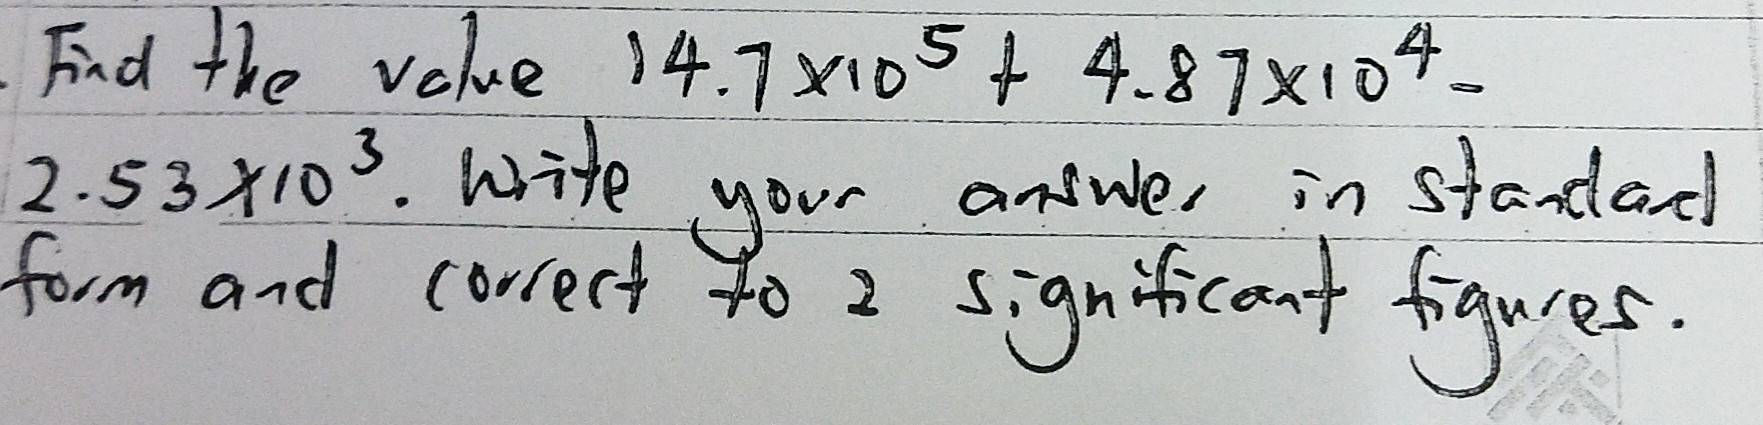 Find the value 14.7×10⁵ + 4.87×10⁴ -
2.53×10³. Write your answer in standard
form and correct to 2 significant figures.